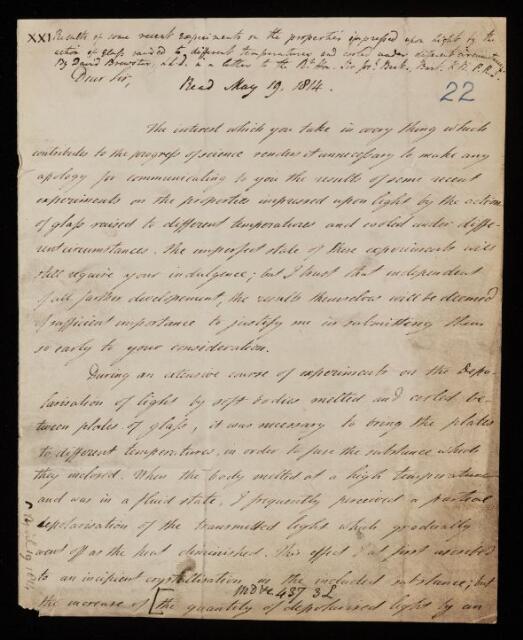 XXI Results of some recent experiments on the properties impressed upon light by the
action of glass raised to different temperatures and cooled under different circumstances
By David Brewster, L.L.D. in a letter to the Rt Hon. Sir Jos. Banks, Bart. K.B. P.R.S.
Dear Sir,
Read May 19. 1814.
22
The interest which you take in every thing which
contributes to the progress of science renders it unnecessary to make any
apology for communicating to you the results of some recent
experiments on the properties impressed upon light by the action
of glass raised to different temperatures and cooled under diffe-
rent circumstances. The imperfect state of these experiments will
still require your indulgence; but I trust that independent
of all farther developement, the results themselves will be deemed
of sufficient importance to justify me in submitting them
so early to your consideration.
During an extensive course of experiments on the depo-
larisation of light by soft bodies melted and cooled be-
tween plates of glass, it was necessary to bring the plates
to different temperatures, in order to fuse the substance which
they inclosed. When the body melted at a high temperature
and was in a fluid state, I frequently perceived a partial
depolarisation of the transmitted light which gradually
went off as the heat diminished. This effect I at first ascribed
to an incipient crystallisation in the included substance; but
437
the increase of [the quantity of depolarised light by an